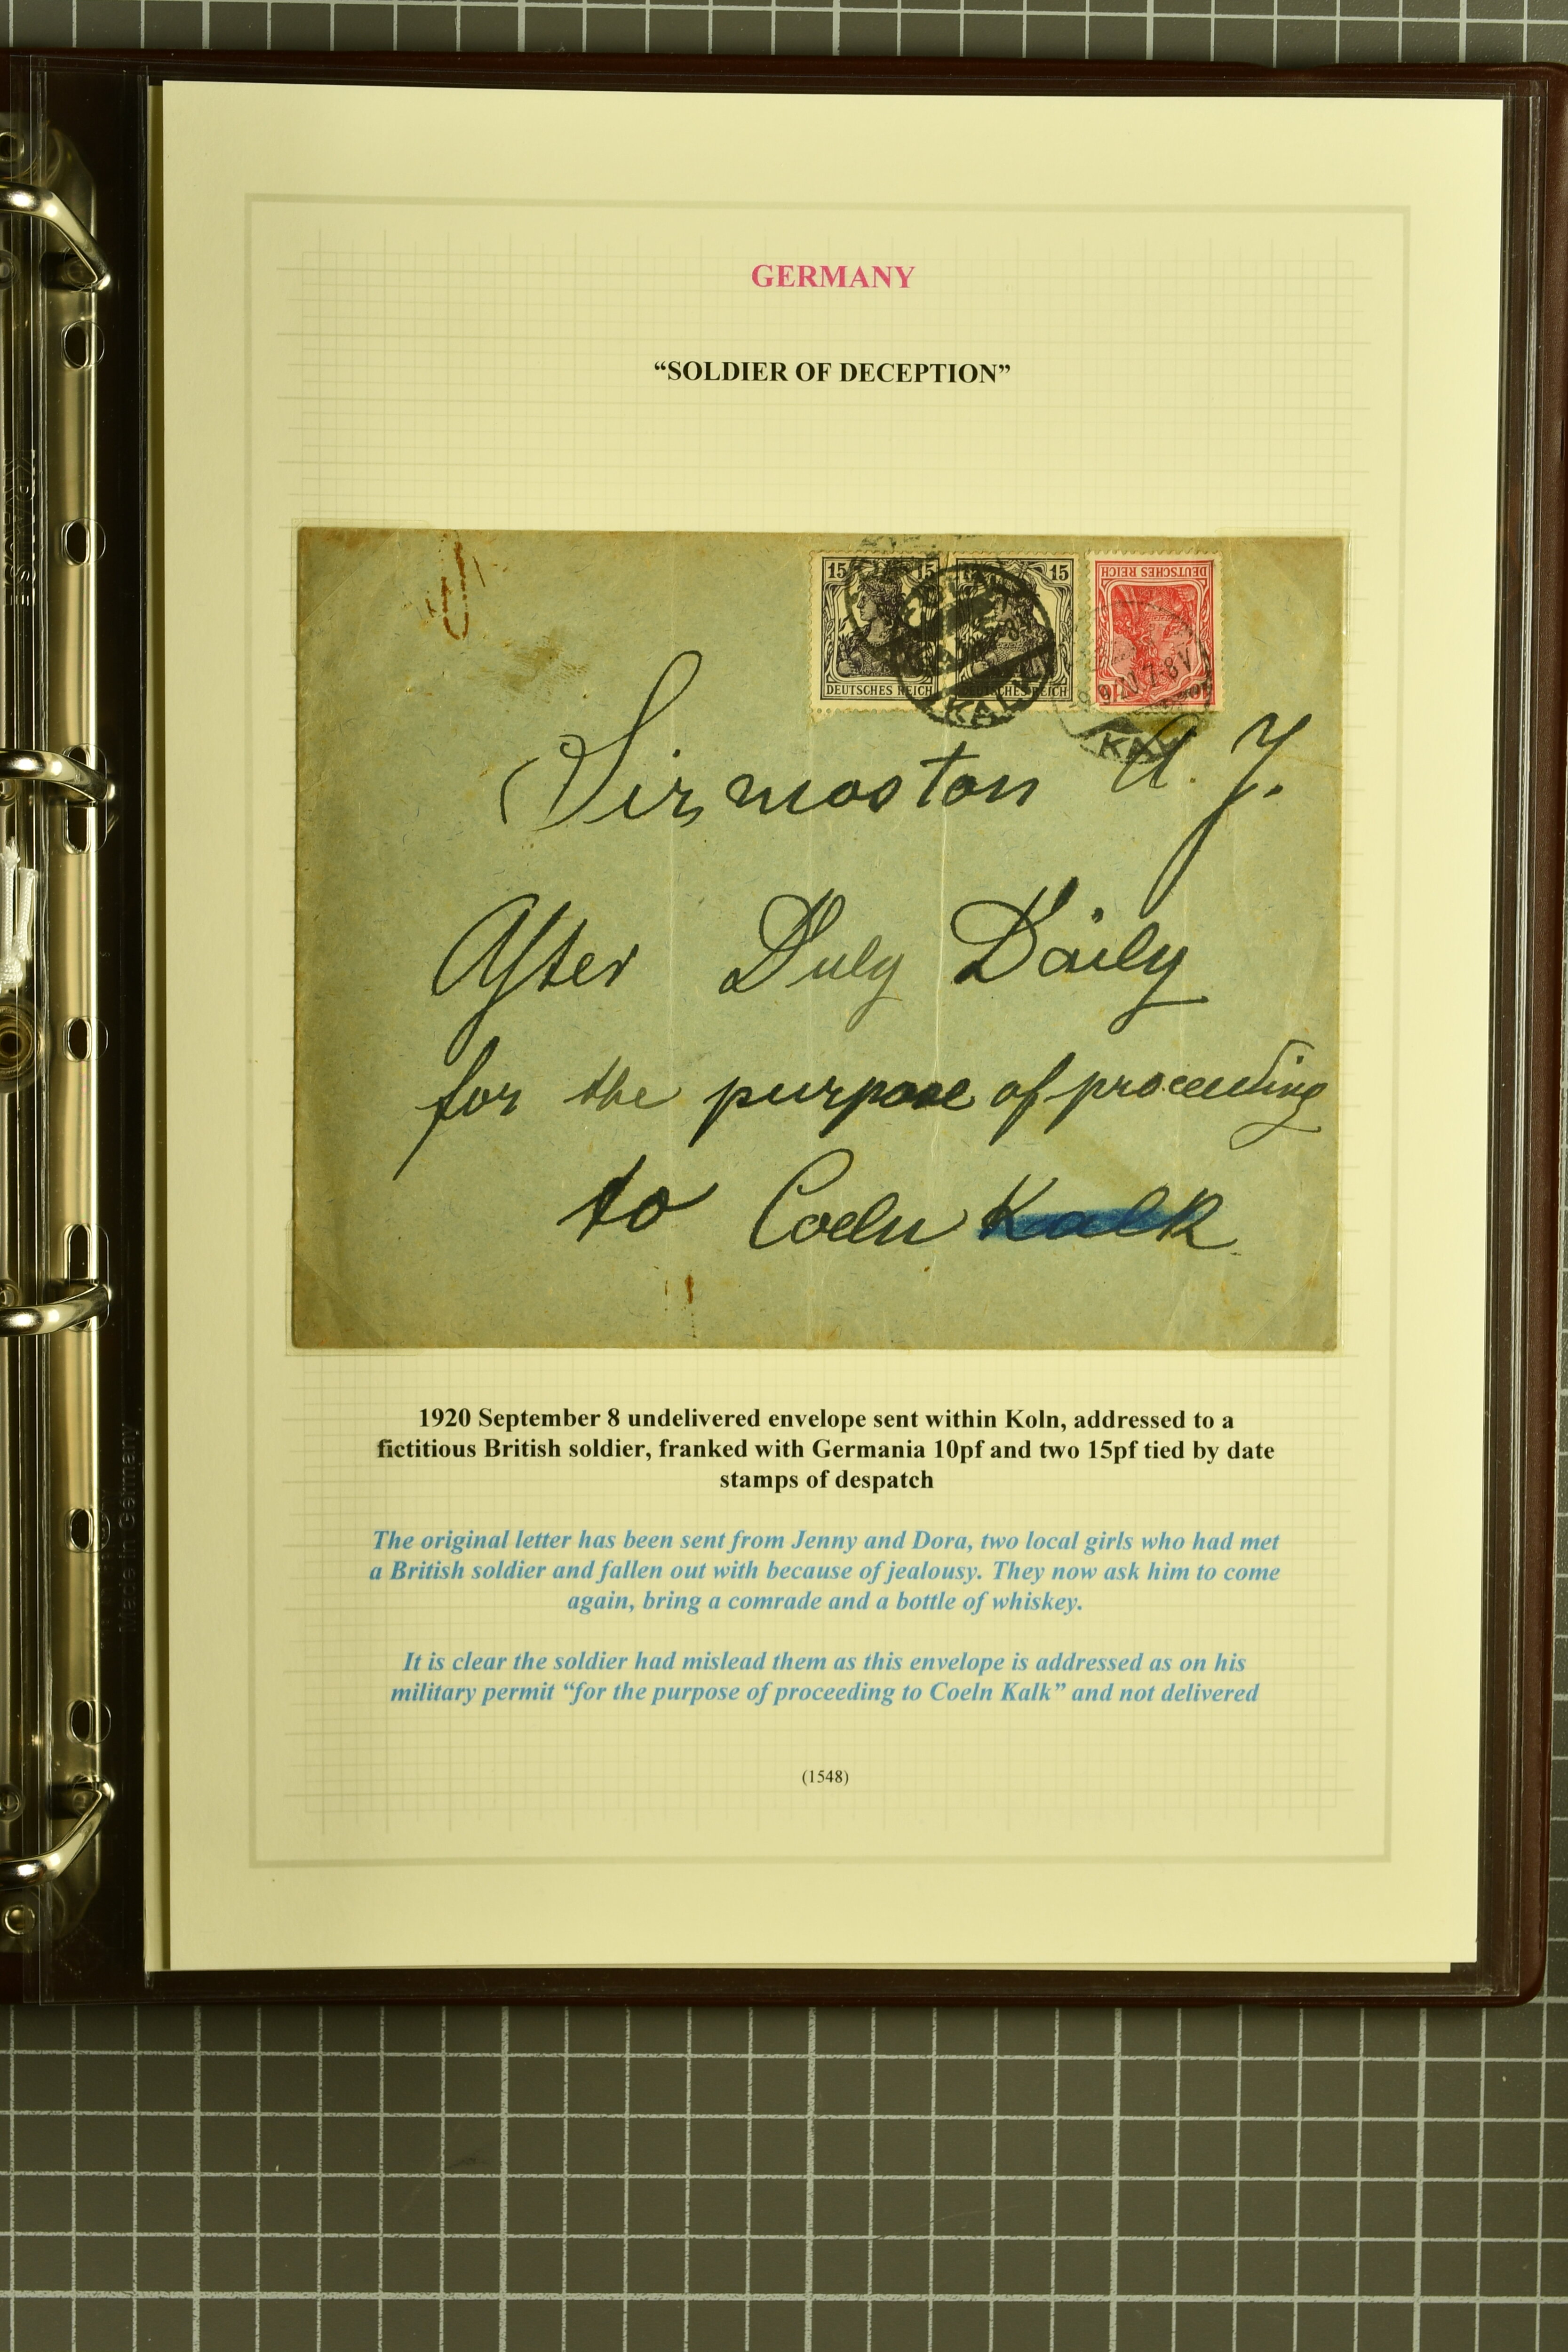 GERMANY
“SOLDIER OF DECEPTION”
15 15 15
DEUTSCHES REICH DEUTSCHES REICH
DEUTSCHES REICH
KALK
9.9.20.7-8V
KALK
Sir, moston A. J.
After Duly Daily
for the purpose of proceeding
to Coeln Kalk
1920 September 8 undelivered envelope sent within Koln, addressed to a
fictitious British soldier, franked with Germania 10pf and two 15pf tied by date
stamps of despatch
The original letter has been sent from Jenny and Dora, two local girls who had met
a British soldier and fallen out with because of jealousy. They now ask him to come
again, bring a comrade and a bottle of whiskey.
It is clear the soldier had mislead them as this envelope is addressed as on his
military permit “for the purpose of proceeding to Coeln Kalk” and not delivered
(1548)
Made in Germany